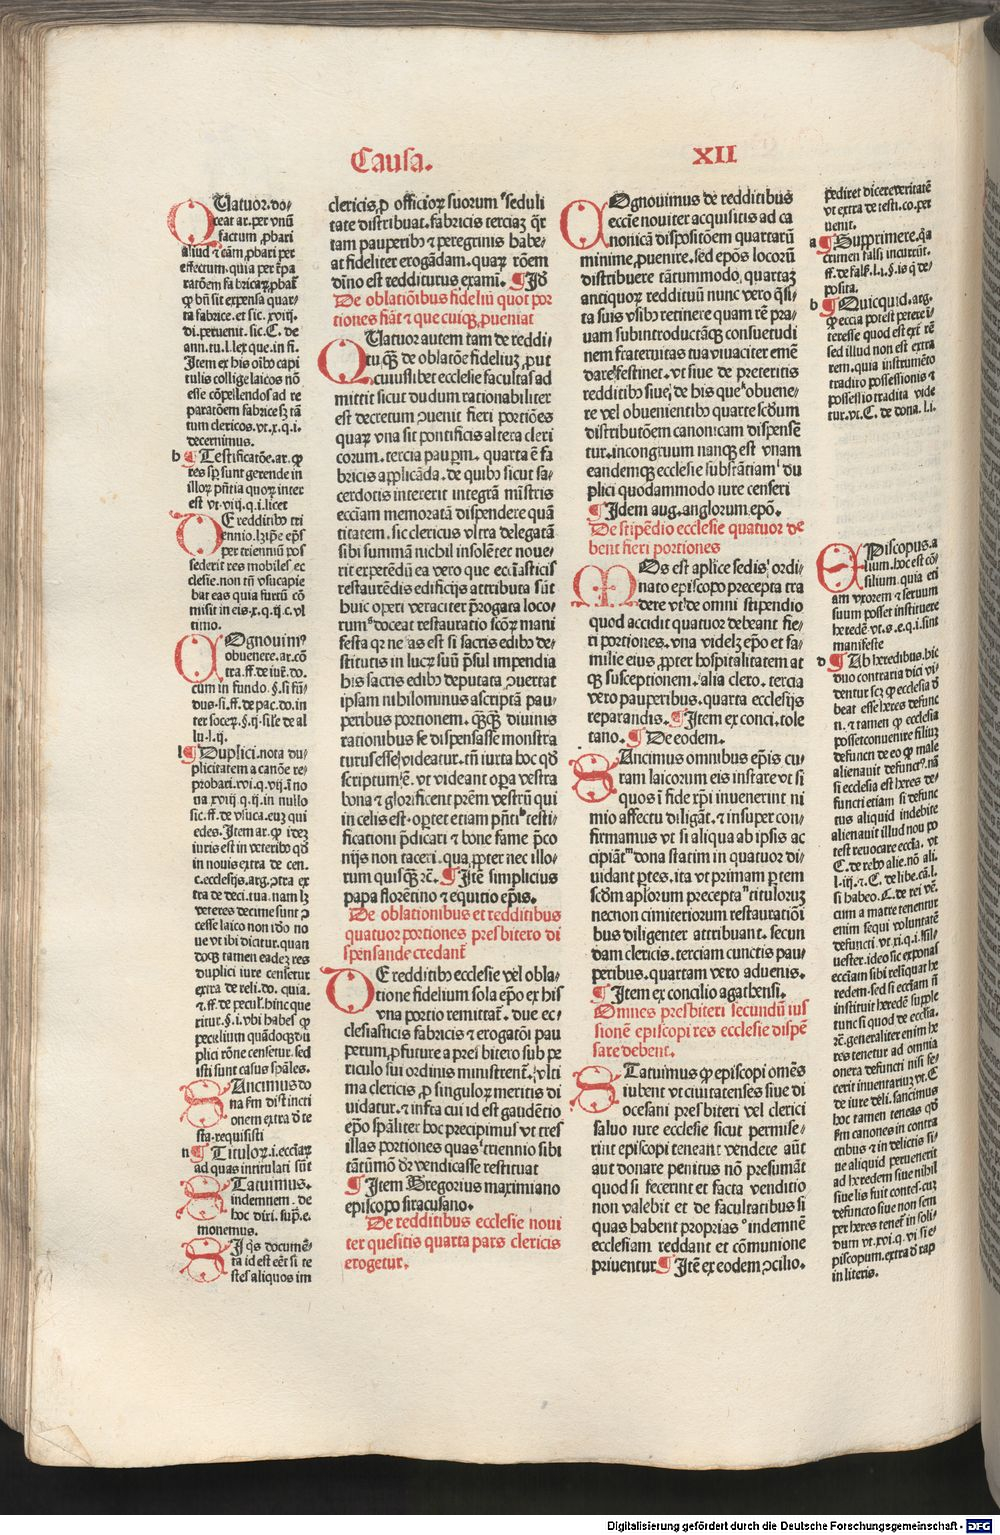 Causa. XII
Uatuor. do⸗
ceat ar. per vnū
factum ꝓbari
aliud ⁊ tām ꝓbari per
effectum. quia per
ta fabrice. et sic. xviij.
di. peruenit. sic. C. de
ann. tu. l. lex que. in fi.
Item ex his oībꝰ capi
tulis collige laicos nō
esse cōpellendos ad re
paratōem fabrice sꝫ tā
tum clericos. vt. x. q. i.
decernimus.
b ¶ Testificatōe. ar. ꝙ
res sp̄ sunt gerende in
illoꝝ pn̄tia quoꝝ inter
est vt. viij. q. i. licet
De redditibꝰ tri
ennio. l⁊ ip̄e ep̄s
per trienniū pos
sederit res mobiles ec
clesie. non tn̄ vsucapie
bat eas quia furtū cō
misit in eis. x. q. ij. c. vl
timo.
Cognouimꝰ
obuenere. ar. cō
tra. ff. de iur̄. do.
cum in fundo. §. si fūn
dus. si. ff. de pac. do. in
ter soceꝝ. §. ij. sile de al
lu. l. ij.
l ¶ Duplici. nota du⸗
plicitatem a canōe re⸗
probari. xvi. q. vij. i no
na xviij q. ij. in nullo
sic. ff. de vsuca. eūꝫ qui
edes. Item ar. ꝙ ideꝫ
iuris est in veteribꝰ qd̄
in nouis extra de cen.
c. ecclesijs. arg. ↄtra ex
tra de deci. tua. nam lꝫ
veteres decime sunt ↄ
cesse laico non ido no
ue vt ibi dicitur. quan
doqꝫ tamen eadeꝫ res
duplici iure censetur
extra de reli. do. quia.
⁊. ff. de pecul. hinc que
ritur. §. i. vbi habes ꝙ
peculium quādoqꝫ du
plici rōne censetur. sed
isti sunt casus spāles.
Sancimus do
na s̄m distincti
onem extra d̄ te
sta. requisisti
n ¶ Tituloꝝ. i. eccl̄iaꝝ
ad quas intitulati sūt
Statuimus.
indemnem. de
hoc dixi. sup̄. e.
monemus.
Si qs̄ documē⸗
ta id est eēt si te
stes aliquos im
clericis, ꝓ officioꝝ suorum seduli
tate distribuat. fabricis terciaꝫ q̄r
tam pauperibꝰ ⁊ peregrinis habe⸗
at fideliter erogādam. quaꝝ rōem
dīno est redditurus examī. ¶ Jd̄
De oblatiōibus fideliū quot por
tiones fiāt ⁊ que cuiqꝫ ꝓueniat
Quatuor autem tam de reddi⸗
tu, qꝫ de oblatōe fideliuꝫ, ꝓut
cuiuslibet ecclesie facultas ad
mittit sicut dudum rationabiliter
est decretum ↄuenit fieri portiōes
quaꝝ vna sit pontificis altera cleri
corum. tercia paup̄m. quarta ē fa
bricis applicāda. de quibꝰ sicut sa⸗
cerdotis intererit integrā mīstris
eccl̄iam memoratā dispendere quā
titatem. sic clericus vltra delegatā
sibi summā nichil insolēter noue⸗
rit expetēdū ea vero que ecc̄iasticis
restaurēdis edificijs attributa sūt
huic operi veraciter p̄rogata loco⸗
rum doceat restauratio scōꝝ mani
festa qꝛ nefas est si sacris edibꝰ de⸗
stitutis in lucꝝ suū p̄sul impendia
his sacris edibꝰ deputata ↄuertat
ipsam nihilominus ascriptā pau⸗
peribus portionem. qꝫqꝫ diuinis
rationibus se dispensasse monstra
turus esse videatur. tn̄ iuxta hoc qd̄
scriptum ē. vt videant oꝑa vestra
bona ⁊ glorificent prēm vestrū qui
in celis est. oportet etiam pn̄ti testi⸗
ficationi p̄dicari ⁊ bone fame p̄co
nijs non taceri. qua ꝓpter nec illo⸗
rum quisqꝫ ⁊c̄. ¶ Itē simplicius
papa florētino ⁊ equitio ep̄is.
De oblationibus et redditibus
quatuor portiones presbitero di
spensande credant̄
De redditibꝰ ecclesie vel obla⸗
tione fidelium sola ep̄o ex his
vna portio remittat̄. due ec⸗
clesiasticis fabricis ⁊ erogatōi pau
perum, ꝓfuture a presbitero sub pe
riculo sui ordinis ministrent̄. vlti
ma clericis, ꝓ singuloꝝ meritis di
uidatur. ⁊ infra cui id est gaudētio
ep̄o spāliter hoc precipimus vt tres
illas portiones quas triennio sibi
tātūmō dr̄ vendicasse restituat
¶ Item Gregorius maximiano
episcopo siracusano.
De redditibus ecclesie noui
ter quesitis quarta pars clericis
erogetur.
Cognouimus de redditibus
eccl̄ie nouiter acquisitis ad ca
nonicā dispositōem quartarū
minime, ꝓuenire. sed ep̄os locorū
distribuere tātummodo, quartaꝫ
antiquoꝝ reddituū nunc vero q̄si⸗
ta suis vsibꝰ retinere quam rē pra⸗
uam subintroductāqꝫ consuetudi
nem fraternitas tua viuaciter emē
dare festinet. vt siue de preteritis
redditibꝰ siue de his que obuene⸗
re vel obuenientibꝰ quarte scd̄um
distributōem canonicam dispensē
tur. incongruum nanqꝫ est vnam
eandemqꝫ ecclesie substātiam du
plici quodammodo iure censeri
¶ Idem aug. anglorum ep̄o.
De stipēdio ecclesie quatuor de
bent fieri portiones
Mos est aplice sedis ordi⸗
nato episcopo precepta tra
dere vt de omni stipendio
quod accidit quatuor debeant fie⸗
ri portiones. vna videlꝫ ep̄o et fa⸗
milie eius ꝓpter hospitalitatem at
qꝫ susceptionem. alia clero. tercia
vero pauperibus. quarta ecclesijs
reparandis. ¶ Item ex conci. tole
tano. ¶ De eodem.
Sancimus omnibus ep̄is cu⸗
ram laicorum eis instare vt si
quos ī fide xp̄i inuenerint ni
mio affectu diligāt. ⁊ insuper con⸗
firmamus vt si aliqua ab ipsis ac
cipiāt dona statim in quatuor di⸗
uidant ꝑtes. ita vt primam ꝑtem
scd̄m aplorum precepta tituloruꝫ
necnon cimiteriorum restauratiōi
bus diligenter attribuant. secun
dam clericis. terciam cunctis pau⸗
peribus. quartam vero aduenis.
¶ Item ex concilio agathensi.
Omnes presbiteri secundū ius
sionē episcopi res ecclesie dispē
sare debent.
Statuimus ꝙ episcopi omēs
iubent vt ciuitatenses siue di⸗
ocesani presbiteri vel clerici
saluo iure ecclesie sicut permise⸗
rint episcopi teneant vendere aūt
aut donare penitus nō presumāt
quod si fecerint et facta venditio
non valebit et de facultatibus si
quas habent proprias indemnē
ecclesiam reddant et cōmunione
priuentur ¶ Itē ex eodem ↄcilio.
pediret dicere veritatē
vt extra de testi. co. per
uenit.
a ¶ Supprimere. q̄a
crimen falsi incurrūt.
ff. de fals. l. i. §. is q̄ de⸗
posita.
b ¶ Quicquid. arg.
ꝙ eccl̄ia potest petere ī⸗
teresse quod est ext̄ rē
sed illud non est extra
rem. quia instrumēto
tradito possessionis ⁊
possessio tradita vide
tur. vt. C. de dona. l. i.
Episcopus. a
lium. hoc est cō⸗
silium. quia eti
am vxorem ⁊ seruum
suum posset instituere
heredē vt. s. e. q. i. sint
manifeste
d ¶ Ab heredibus. hic
duo contraria dici vi⸗
dentur scꝫ ꝙ ecclesia d̄
beat esse heres defunc
ti. ⁊ tamen ꝙ ecclesia
posset conuenire filiuꝫ
defuncti de eo ꝙ male
alienauit defunctꝰ. nā
si ecclesia est heres de⸗
functi etiam si defunc
tus aliquid indebite
alienauit illud non po
test reuocare eccl̄ia. vt
C. de rebꝰ alie. nō ali.
l. iij. ⁊. C. de libe. cā. l.
si habeo. C. de rei vē.
cum a matre tenentur
enim sequi voluntatē
defuncti vt. xi. q. i. sil⸗
uester. ideo sic exponas
eccl̄iam sibi relīquat he
redem. sed si eccl̄iam n̄
instituit heredē supple
tunc si quod de eccl̄ia.
⁊c̄. generaliter enim he
res tenetur ad omnia
onera defuncti nisi fe⸗
cerit inuentariuꝫ vt. C.
de iure deli. sancimus
hoc tamen teneas qd̄
s̄m canones in contra
ctibus ⁊ in delictis si⸗
ue aliquid peruenerit
ad heredem siue nihil
siue lis fuit contes. cuꝫ
defuncto siue non sem
per heres tenet̄ in soli⸗
dum vt. xvi. q. vi. si e⸗
piscopum. extra d̄ rap
in literis.
Digitalisierung gefördert durch die Deutsche Forschungsgemeinschaft - DFG